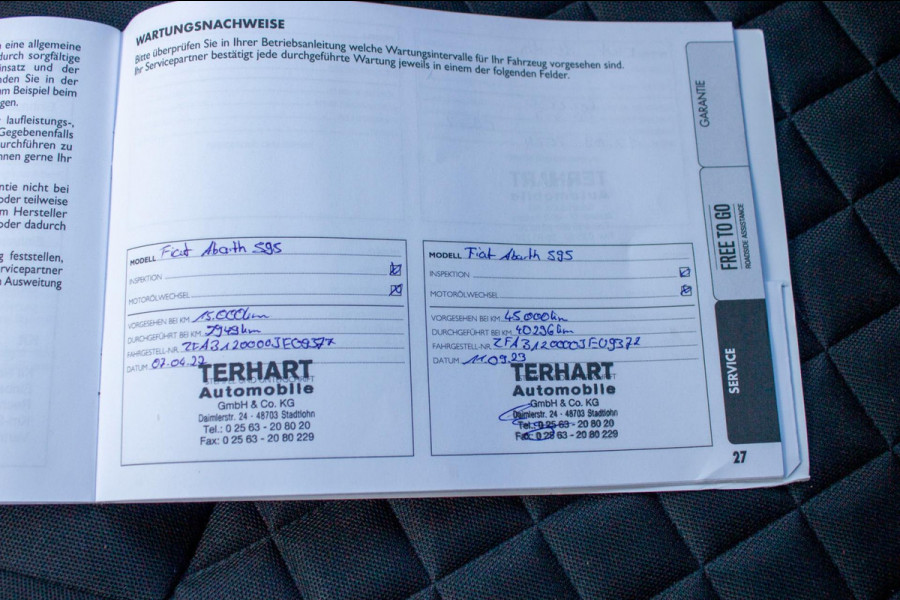 eine allgemeine
durch sorgfältige
insatz und der
den Sie in der
m Beispiel beim
gen.
laufleistungs-,
Gegebenenfalls
urchführen zu
nnen gerne Ihr
ntie nicht bei
oder teilweise
m Hersteller
oder dadurch
g feststellen,
rvicepartner
Ausweitung
WARTUNGSNACHWEISE
Bitte überprüfen Sie in Ihrer Betriebsanleitung welche Wartungsintervalle für Ihr Fahrzeug vorgesehen sind.
Ihr Servicepartner bestätigt jede durchgeführte Wartung jeweils in einem der folgenden Felder.
MODELL Fiat Abarth 595
INSPEKTION
MOTORÖLWECHSEL
VORGESEHEN BEI KM 15.000km
DURCHGEFÜHRT BEI KM 7949km
FAHRGESTELL-NR. ZFA3120000JE09377
DATUM 07.04.22
TERHART
Automobile
GmbH & Co. KG
Daimlerstr. 24 - 48703 Stadtlohn
Tel.: 0 25 63 - 20 80 20
Fax: 0 25 63 - 20 80 229
MODELL Fiat Abarth 595
INSPEKTION
MOTORÖLWECHSEL
VORGESEHEN BEI KM 45.000km
DURCHGEFÜHRT BEI KM 40296km
FAHRGESTELL-NR. ZFA3120000JE09372
DATUM 11.09.23
TERHART
Automobile
GmbH & Co. KG
Daimlerstr. 24 - 48703 Stadtlohn
Tel.: 0 25 63 - 20 80 20
Fax: 0 25 63 - 20 80 229
GARANTIE
FREE TO GO
ROADSIDE ASSISTANCE
SERVICE
27